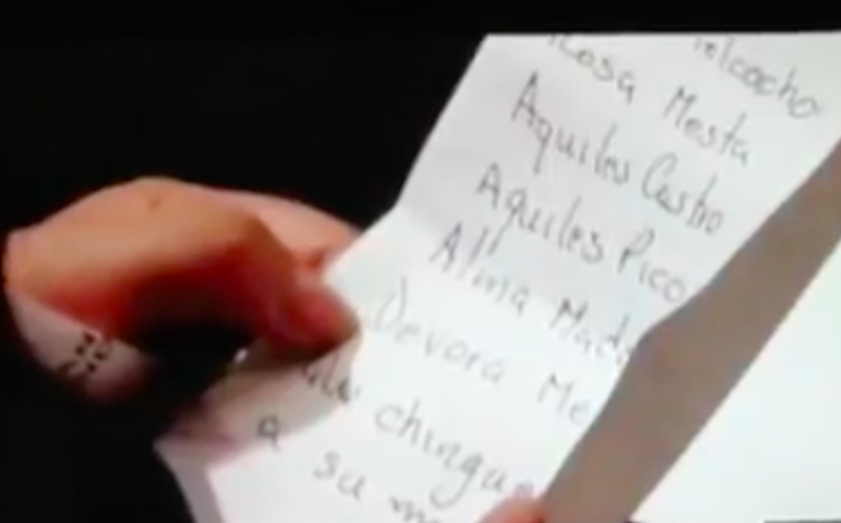 elcocho
Rosa Mesta
Aquiles Castro
Aquiles Pico
Alma Mada
Devora Me
chingue
a su m